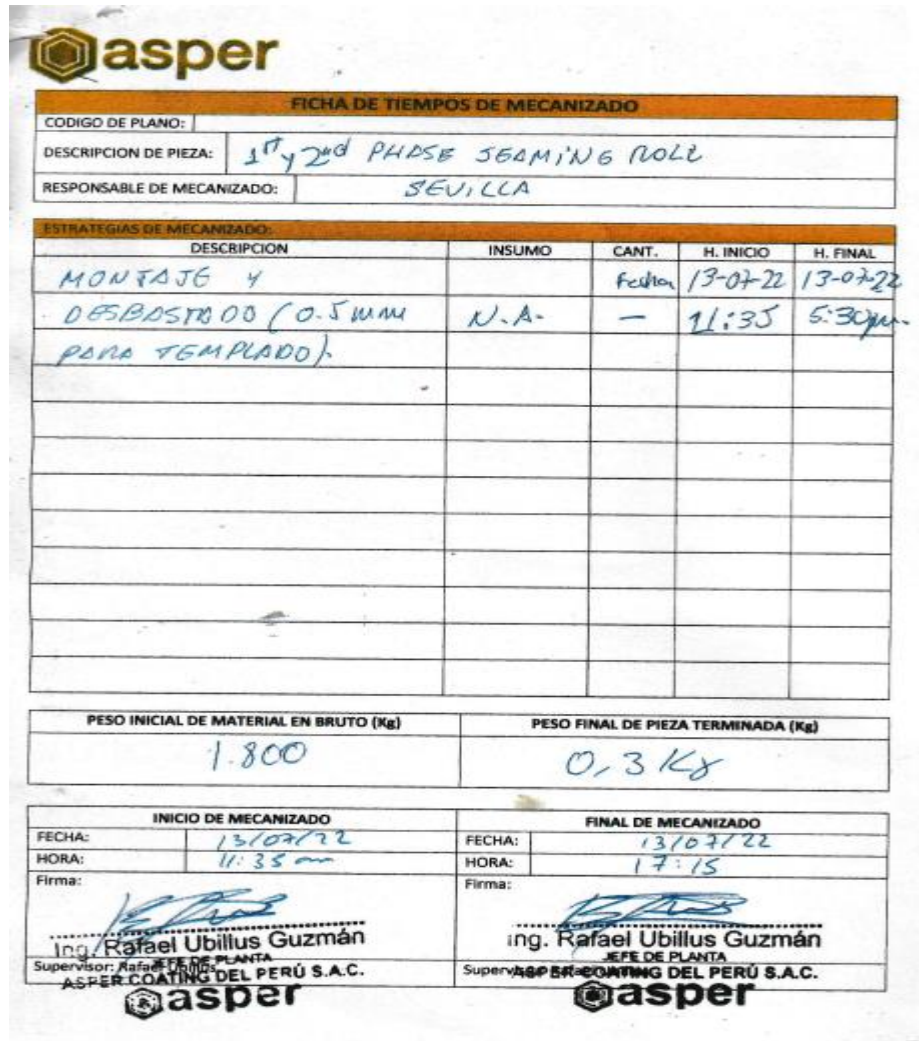 asper
FICHA DE TIEMPOS DE MECANIZADO
CODIGO DE PLANO:
DESCRIPCION DE PIEZA: 1st y 2nd PHASE SEAMING ROLL
RESPONSABLE DE MECANIZADO: SEVILLA
ESTRATEGIAS DE MECANIZADO:
DESCRIPCION INSUMO CANT. H. INICIO H. FINAL
MONTAJE Y Fecha 13-07-22 13-07-22
DESBASTADO (0.5 mm N.A. — 11:35 5:30pm.
PARA TEMPLADO).
PESO INICIAL DE MATERIAL EN BRUTO (Kg) PESO FINAL DE PIEZA TERMINADA (Kg)
1.800 0,3 Kg
INICIO DE MECANIZADO FINAL DE MECANIZADO
FECHA: 13/07/22 FECHA: 13/07/22
HORA: 11:35 am HORA: 17:15
Firma: Firma:
Ing. Rafael Ubillus Guzmán ing. Rafael Ubillus Guzmán
JEFE DE PLANTA JEFE DE PLANTA
Supervisor: Rafael Ubillus
ASPER COATING DEL PERÚ S.A.C. ASPER COATING DEL PERÚ S.A.C.
asper asper